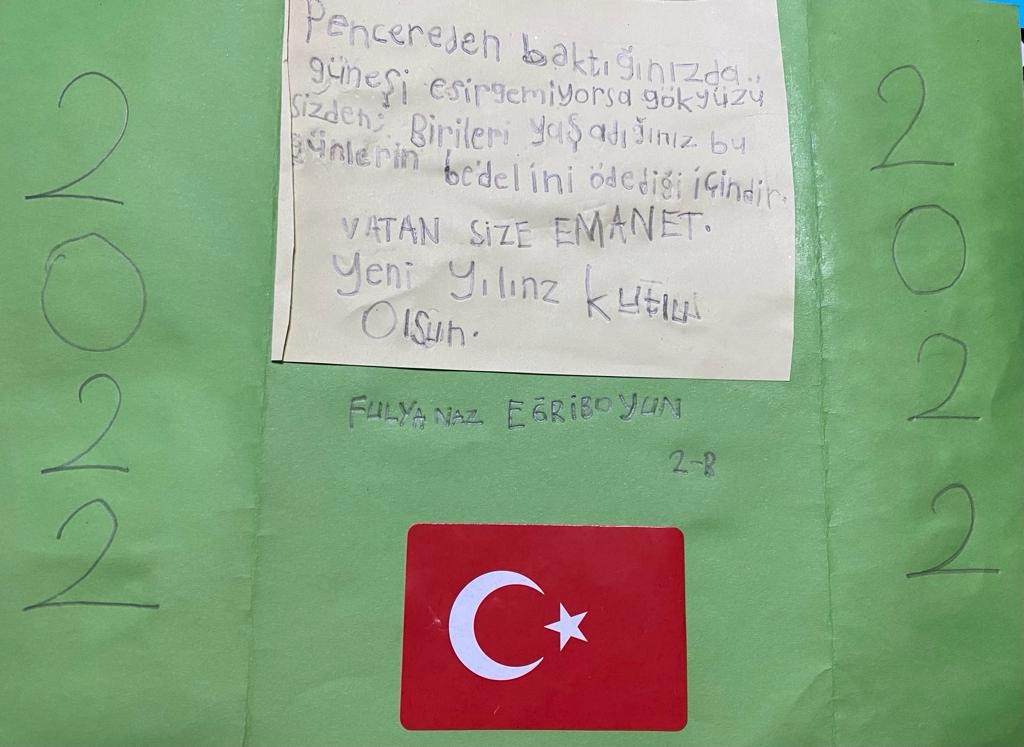 Pencereden baktığınızda..
güneşi esirgemiyorsa gökyüzü
sizden; Birileri yaşadığınız bu
günlerin bedelini ödediği içindir.
VATAN SİZE EMANET.
Yeni Yılınz kutlu
Olsun.
FULYA NAZ EĞRİBOYUN
2-B
2
0
2
2
2
0
2
2